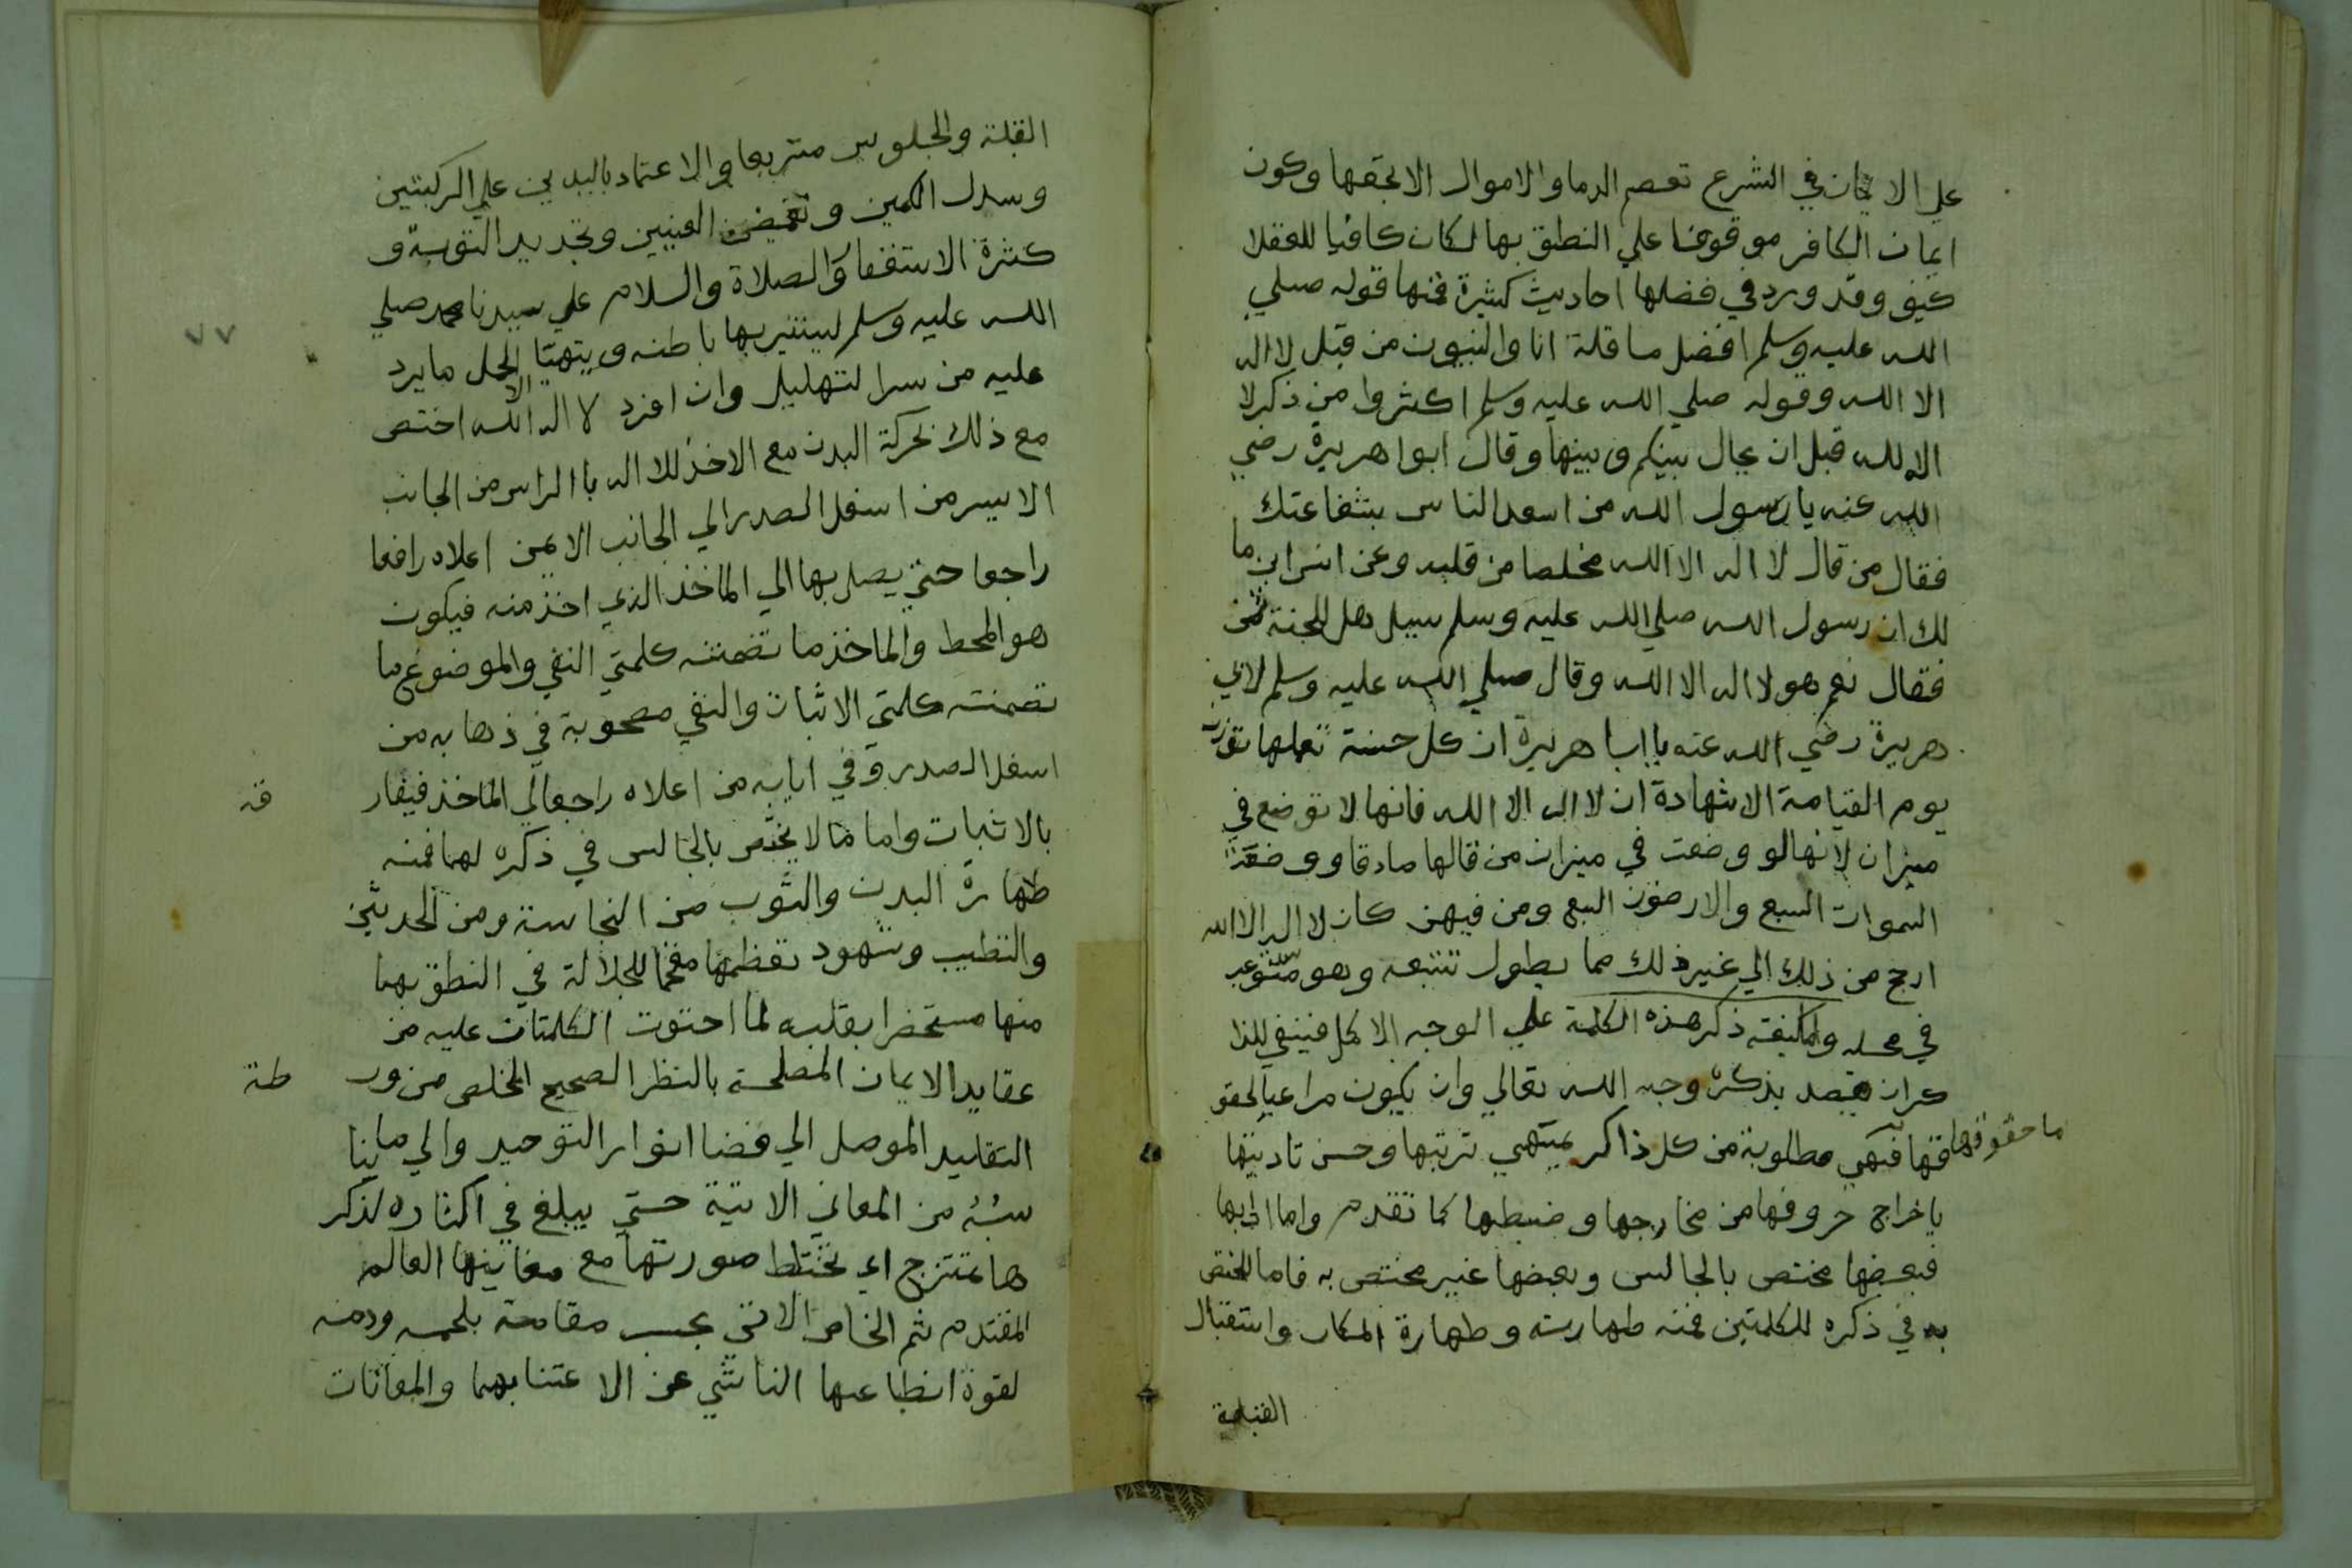 علي الايمان في الشرع تعصم الدما والاموال الا بحقها وكون
ايمان الكافر موقوفا علي النطق بها لكان كافيا للعقلا
كيف وقد ورد في فضلها احاديث كثيرة فمنها قوله صلي
الله عليه وسلم افضل ما قلة انا والنبيون من قبل لا اله
الا الله وقوله صلي الله عليه وسلم اكثروا من ذكر لا
الا لله قبل ان يحال بينكم وبينها وقال ابوا هريرة رضي
الله عنه يا رسول الله من اسعد الناس بشفاعتك
فقال من قال لا اله الا الله مخلصا من قلبه وعن انس ابن ما
لك ان رسول الله صلي الله عليه وسلم سيل هل للجنة ثمن
فقال نعم هو لا اله الا الله وقال صلي الله عليه وسلم لابي
هريرة رضي الله عنه يا ابا هريرة ان كل حسنة تعملها توزن
يوم القيامة الا شهادة ان لا اله الا الله فانها لا توضع في
ميزان لانها لو وضعت في ميزان من قالها صادقا ووضعت
السموات السبع والارضون السبع ومن فيهن كان لا اله الا الله
ارجح من ذلك الي غير ذلك مما يطول تتبعه وهو مستوعب
في محله ولما كيفته ذكر هذه الكلمة علي الوجه الا كمل فينبغي للذا
كر ان يقصد بذكره وجه الله تعالي وان يكون مراعيا لحقو
قها فهي مطلوبة من كل ذاكر ترتبها وحسن تاديتها
ما حقوقها
باخراج حروفها من مخارجها وضبطها كما تقدم واما ادابها
فبعضها مختص بالجالس وبعضها غير مختص به فاما المختص
به في ذكره للكلمتين فمنه طهارته وطهارة المكان واستقبال
القبلة
القبلة والجلوس متربعا والاعتماد باليدين علي الركبتين
وسدل الكمين وتغميض العينين وتجديد التوبة و
كثرة الاستغفا والصلاة والسلام علي سيدنا محمد صلي
الله عليه وسلم ليستنير بها باطنه ويتهيا لحمل ما يرد
عليه من سر التهليل وان افرد لا اله الا الله اختص
٧٧
مع ذلك بحركة البدن مع الاخذ للا اله با الراس من الجانب
الايسر من اسفل الصدر الي الجانب الايمن اعلاه رافعا
راجعا حتي يصل بها الي الماخذ الذي اخذ منه فيكون
هو المحط والماخذ ما تضمنته كلمتي النفي والموضوع ما
تضمنته كلمتي الاثبات والنفي مصحوبة في ذهابه من
اسفل الصدر وفي ايابه من اعلاه راجعا الي الماخذ فيفار
قه
بالاثبات واما ما لا يختص بالجالس في ذكره لهما فمنه
طهارة البدن والثوب من النجاسة ومن الحدثين
والتطيب وشهود تعظيمها مفخما للجلالة في النطق بهما
منها مستحضرا بقلبه لما احتوت الكلمتان عليه من
عقايد الايمان بالنظر الصحيح المخلص من ور
طة
التقليد الموصل الي فضا انوار التوحيد والي ما ينا
سبه من المعاني الاتية حتي يبلغ في اكثاره لذكر
ها تمتزج اي تختلط صورتها مع معانيها العالم
المقتدم ثم الخاص الاتي بحسب مقامه بلحمه ودمه
لقوة انطباعها الناشي عن الاعتنا بهما والمعانات